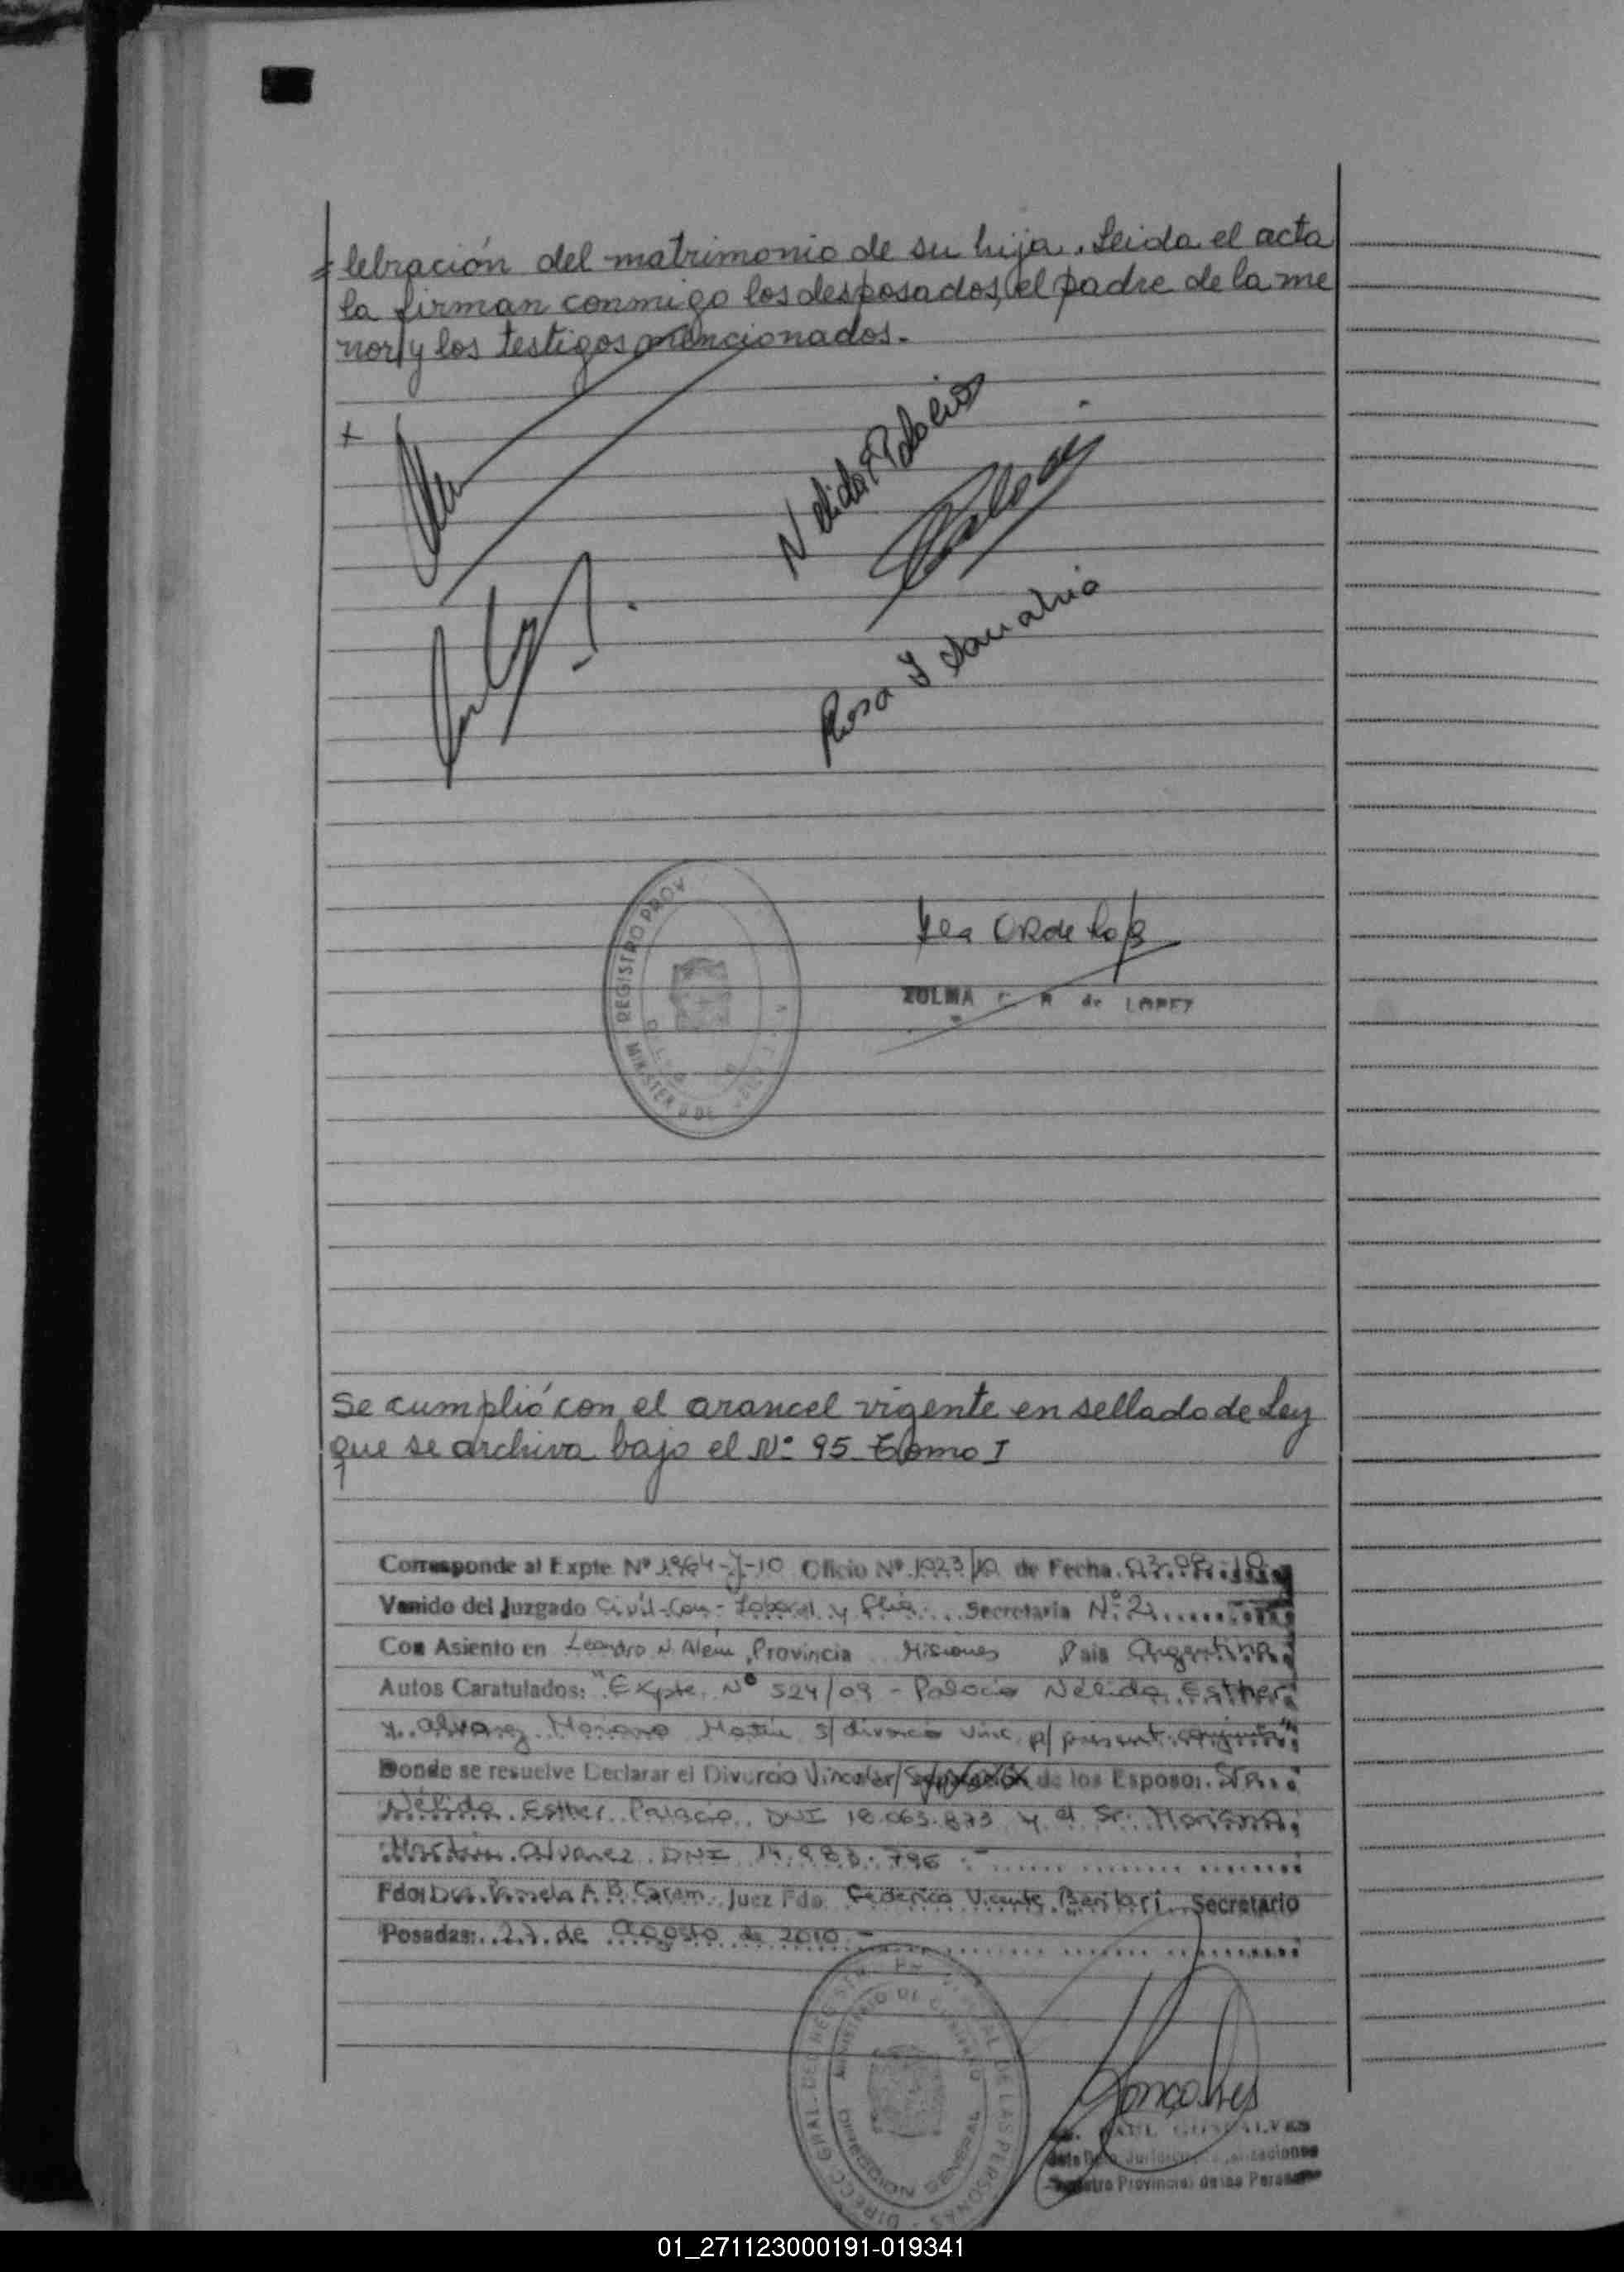 lebración del matrimonio de su hija. Leida el acta
la firman conmigo los desposados, el padre de la me
nor y los testigos mencionados.
Rosa
REGISTRO PROV
MINISTER DE
ZULMA C. R de LOPEZ
Se cumplió con el arancel vigente en sellado de Ley
que se archiva bajo el Nº 95 Tomo I
Corresponde al Expte Nº 1964-J-10 Oficio Nº 1023/10 de Fecha
Venido del Juzgado Civil-Com-Laboral y Flia. Secretaria Nº 2
Con Asiento en Leandro N. Alem, Provincia Misiones Pais Argentina
Autos Caratulados: "Expte. Nº 524/09 - Palacio Nélida Esther
y Alvarez Mariano Martin s/ divorcio vinc. p/ present. conjunta"
Donde se resuelve Declarar el Divorcio Vincular/ de los Esposos: Sra.
Nélida Esther Palacio DNI 18.063.873 y el Sr. Mariano
Martin Alvarez DNI
Fdo: Dra. A. B. Juez Fdo. Federico Vicente Secretario
Posadas: 27 de agosto de 2010
DIRECC GRAL. DEL REGISTRO PROVINCIAL DE LAS PERSONAS
MINISTERIO DE GOBIERNO
DIRECCION GENERAL
Goncalves
RAUL GONSALVES
Registro Provincial de las Personas
01_271123000191-019341